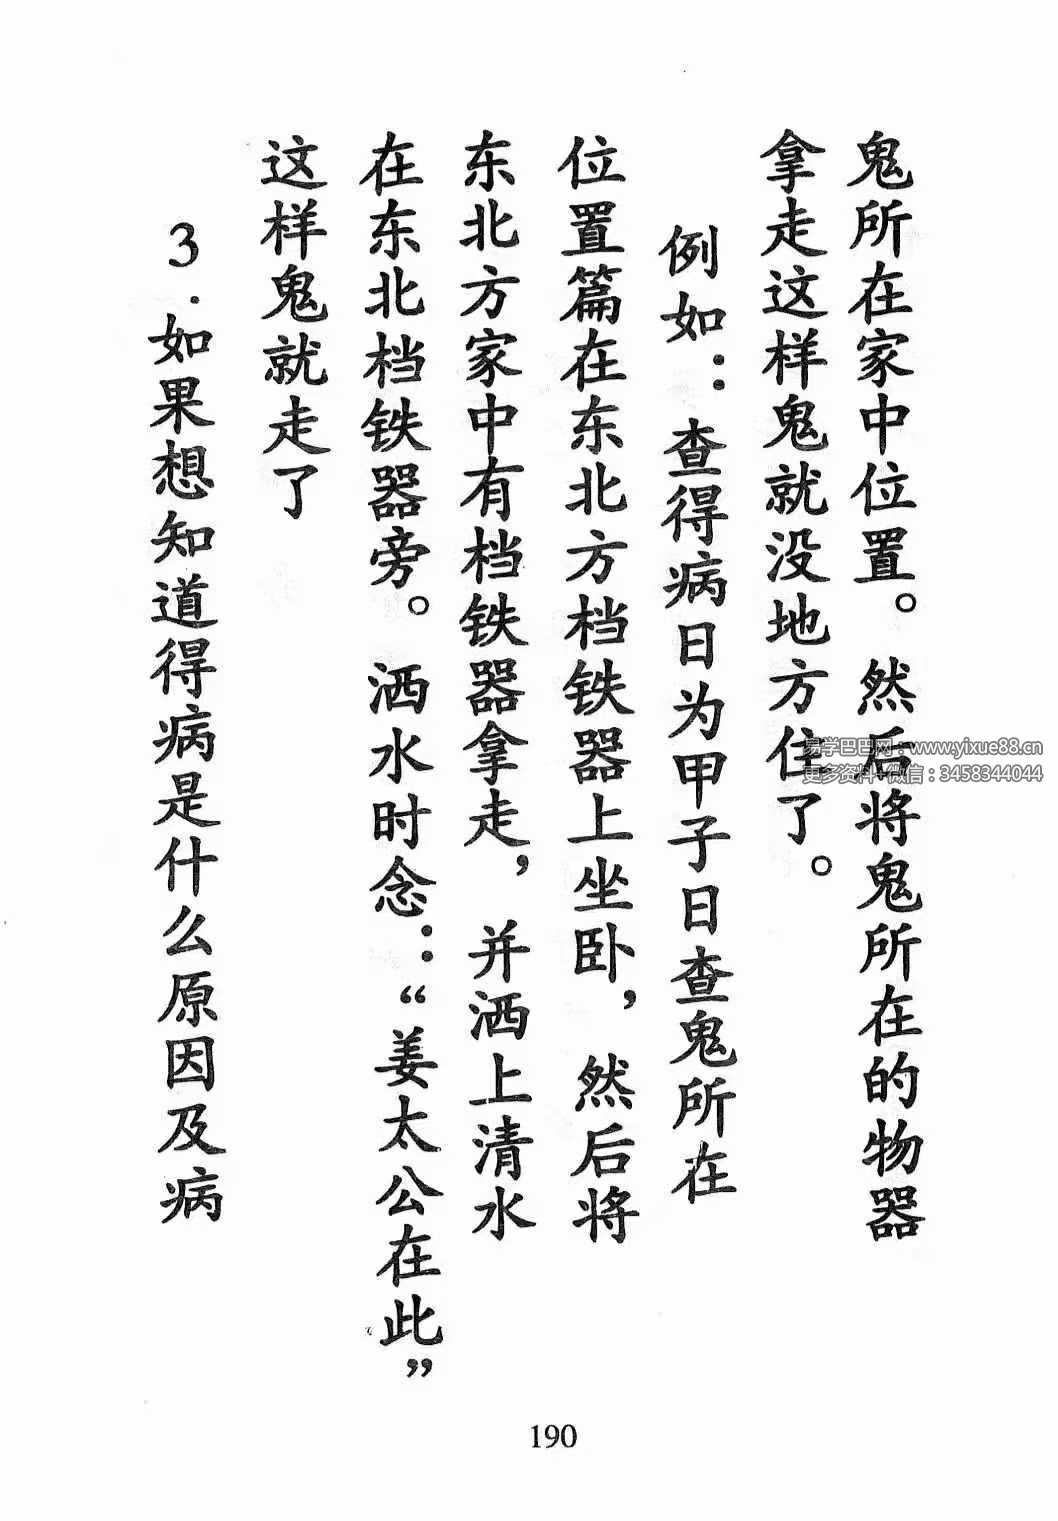 鬼所在家中位置。然后将鬼所在的物器
拿走这样鬼就没地方住了。
例如：查得病日为甲子日查鬼所在
位置篇在东北方档铁器上坐卧，然后将
东北方家中有档铁器拿走，并洒上清水
在东北档铁器旁。洒水时念：“姜太公在此”
这样鬼就走了
3.如果想知道得病是什么原因及病
易学巴巴网：www.yixue88.cn
更多资料+微信：3458344044
190